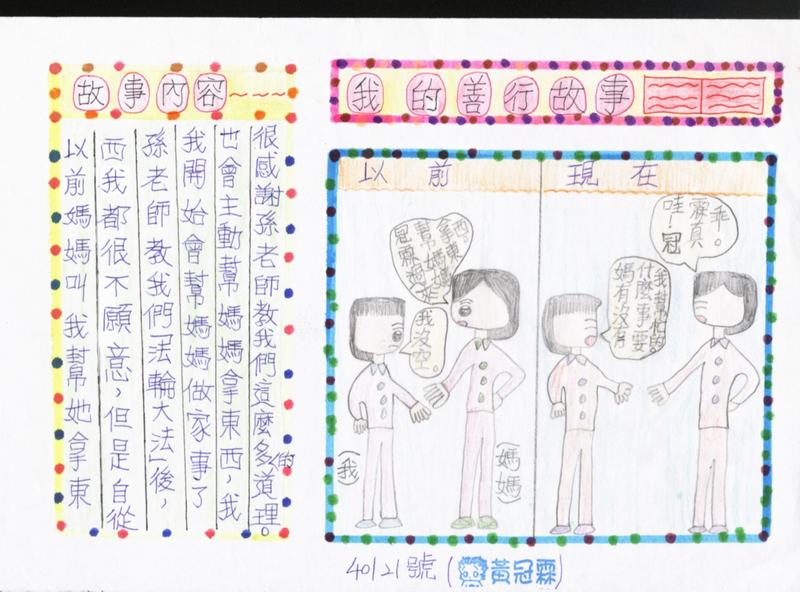 我的善行故事
故事內容~~~
以前媽媽叫我幫她拿東
西我都很不願意,但是自從
孫老師教我們「法輪大法」後,
我開始會幫媽媽做家事了
也會主動幫媽媽拿東西,我
很感謝孫老師教我們這麼多的道理。
以前
冠霖過來
幫媽媽
拿東
西。
我沒空。
(我)
(媽媽)
現在
媽有沒有
什麼事要
我幫忙的
哇!冠
霖真
乖。
40121號(黃冠霖)